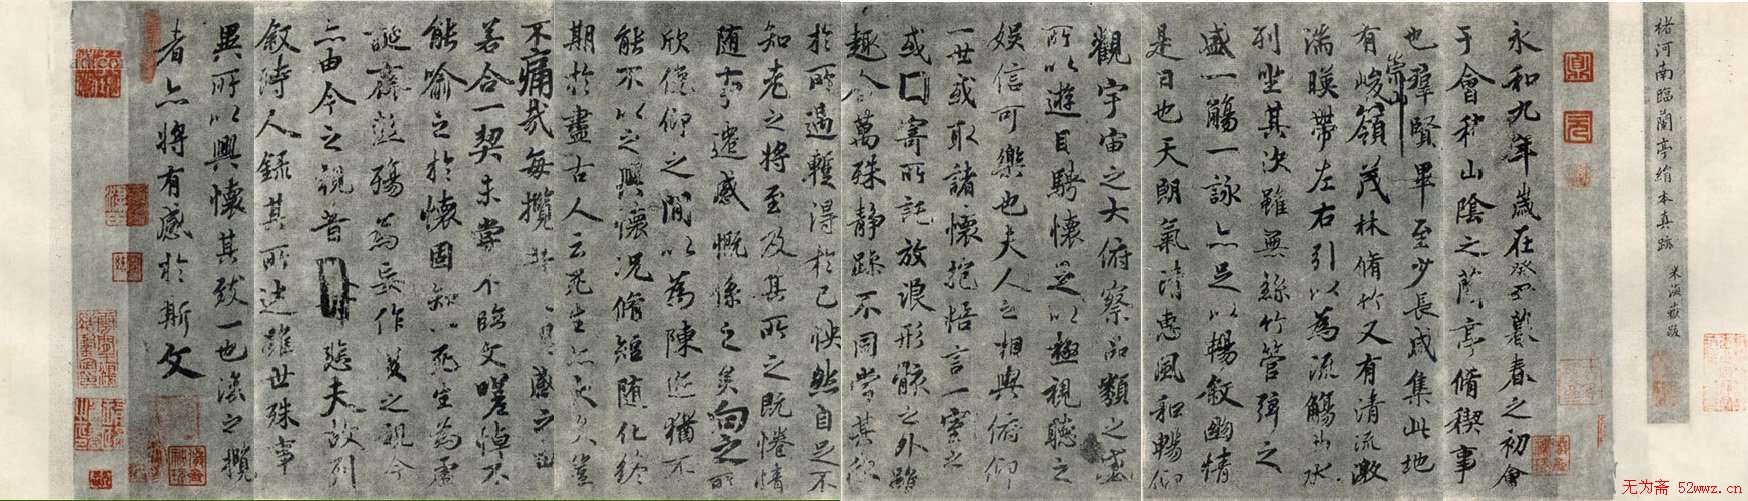 褚河南臨蘭亭絹本真跡 米海嶽跋
永和九年歲在癸丑暮春之初會
于會稽山陰之蘭亭脩稧事
也群賢畢至少長咸集此地
有崇山峻嶺茂林脩竹又有清流激
湍暎帶左右引以為流觴曲水
列坐其次雖無絲竹管弦之
盛一觴一詠亦足以暢敘幽情
是日也天朗氣清惠風和暢仰
觀宇宙之大俯察品類之盛
所以遊目騁懷足以極視聽之
娛信可樂也夫人之相與俯仰
一世或取諸懷抱悟言一室之
或寄所託放浪形骸之外雖
趣舍萬殊靜躁不同當其欣
於所遇蹔得於己怏然自足不
知老之將至及其所之既惓情
隨事遷感慨係之矣向之所
欣俛仰之閒以為陳迹猶不
能不以之興懷況脩短隨化終
期於盡古人云死生亦大矣豈
不痛哉每攬感之由
若合一契未嘗不臨文嗟悼不
能喻之於懷固知一死生為虛
誕齊彭殤為妄作後之視今
亦由今之視昔悲夫故列
敘時人錄其所述雖世殊事
異所以興懷其致一也後之攬
者亦將有感於斯文
无为斋 52wwz.cn